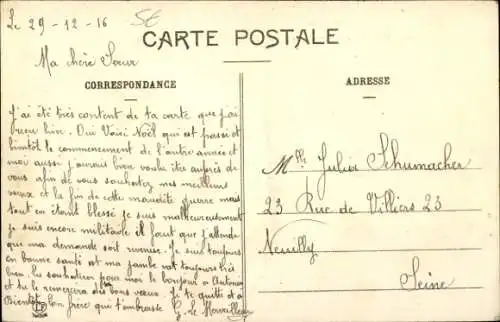 Le 29-12-16
CARTE POSTALE
Ma chère Sœur
CORRESPONDANCE
ADRESSE
J'ai été très content de ta carte que j'ai
reçu hier. Oui Voici Noël qui est passé et
bientôt le commencement de l'autre année et
moi aussi j'aurais bien voulu être auprès de
vous afin de vous souhaitez mes meilleurs
vœux et la fin de cette maudite guerre mais
tout en étant blessé je suis malheureusement
je suis encore militaire il faut que j'attende
que ma demande soit remise. Je suis toujours
en bonne santé et ma jambe va toujours très
bien. tu souhaiteras pour moi le bonjour à
et tu le remercieras des bons vœux. Je te quitte et à
Bientôt. Ton frère qui t'embrasse G. Le
Mlle Julia Schumacher
23 Rue de Villiers 23
Neuilly
Seine